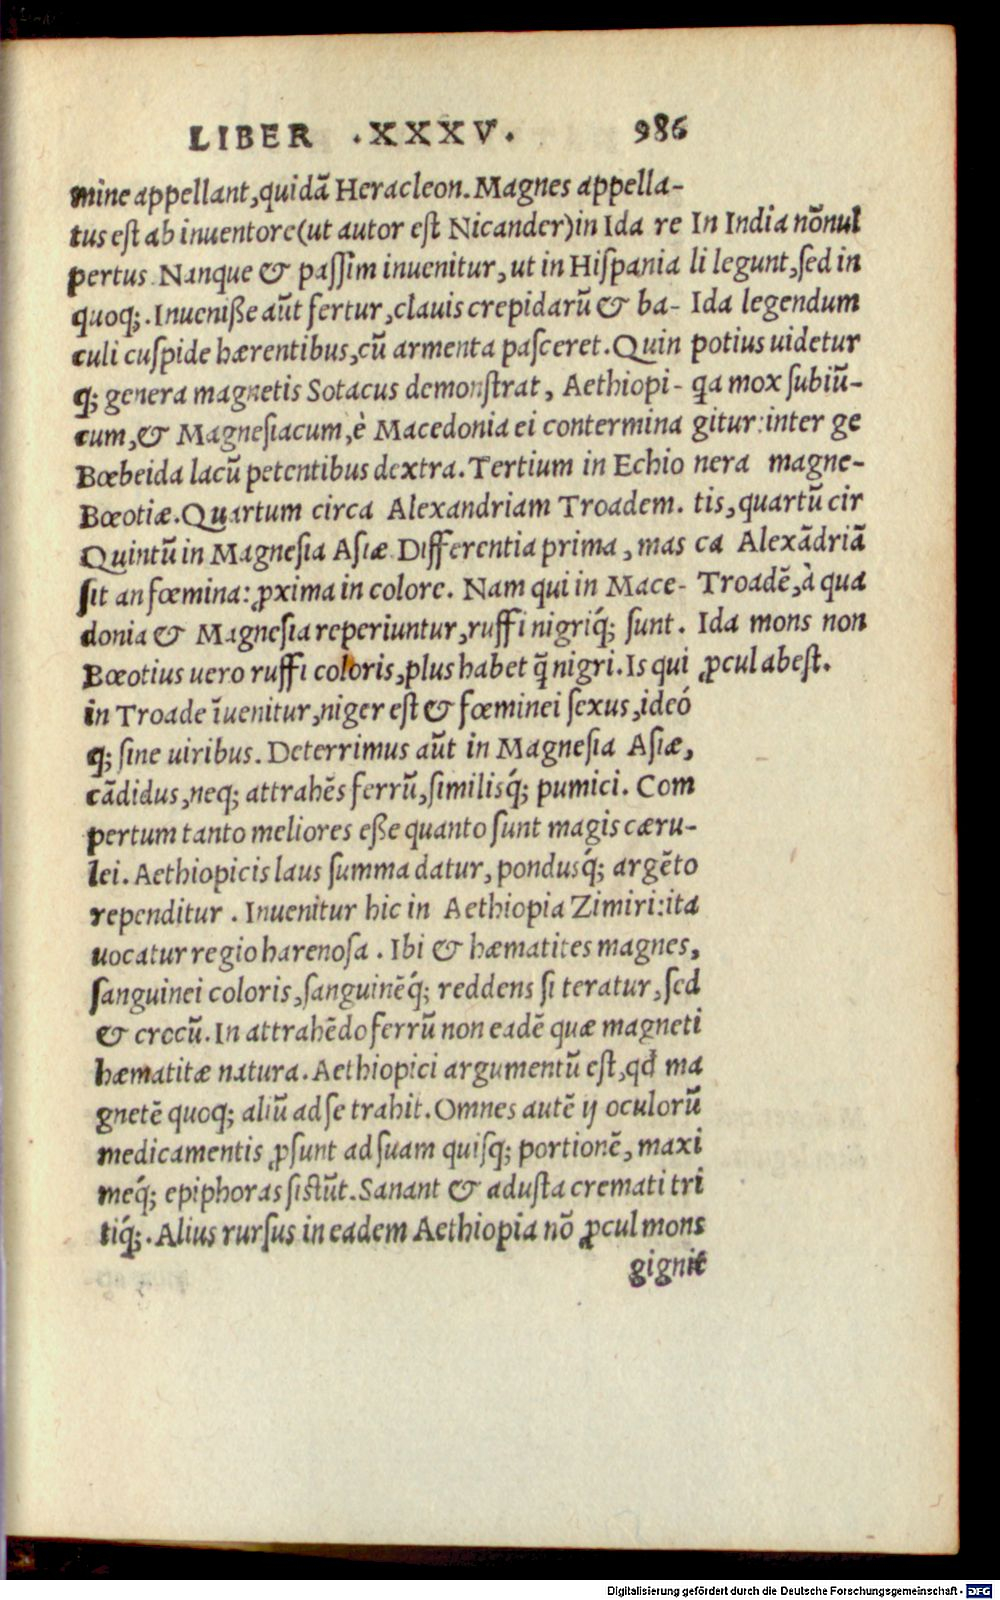 LIBER .XXXV. 986
mine appellant, quidā Heracleon. Magnes appella-
tus est ab inuentore(ut autor est Nicander)in Ida re
pertus. Nanque & paſſim inuenitur, ut in Hiſpania
quoq;. Inueniße aūt fertur, clauis crepidarū & ba-
culi cuſpide hærentibus, cū armenta paſceret. Quin
q; genera magnetis Sotacus demonſtrat, Aethiopi-
cum, & Magneſiacum, è Macedonia ei contermina
Bœbeida lacū petentibus dextra. Tertium in Echio
Bœotiæ. Quartum circa Alexandriam Troadem.
Quintū in Magneſia Aſiæ. Differentia prima, mas
ſit an fœmina: ꝓxima in colore. Nam qui in Mace-
donia & Magneſia reperiuntur, ruffi nigriq́; ſunt.
Bœotius uero ruffi coloris, plus habet q̄ nigri. Is qui
in Troade īuenitur, niger eſt & fœminei ſexus, ideó
q; ſine uiribus. Deterrimus aūt in Magneſia Aſiæ,
cādidus, neq; attrahēs ferrū, ſimilisq́; pumici. Com
pertum tanto meliores eße quanto ſunt magis cæru-
lei. Aethiopicis laus ſumma datur, pondusq́; argēto
rependitur. Inuenitur hic in Aethiopia Zimiri:ita
uocatur regio harenoſa. Ibi & hæmatites magnes,
ſanguinei coloris, ſanguinēq́; reddens ſi teratur, ſed
& crocū. In attrahēdo ferrū non eadē quæ magneti
hæmatitæ natura. Aethiopici argumentū eſt, qđ ma
gnetē quoq; aliū ad ſe trahit. Omnes autē ij oculorū
medicamentis ꝓſunt ad ſuam quiſq; portionē, maxi
meq́; epiphoras ſiſtūt. Sanant & aduſta cremati tri
tiq́;. Alius rurſus in eadem Aethiopia nō ꝓcul mons
gignit
In India nōnul
li legunt, ſed in
Ida legendum
potius uidetur
q̄a mox ſubiū-
gitur: inter ge
nera magne-
tis, quartū cir
ca Alexādriā
Troadē, à qua
Ida mons non
ꝓcul abeſt.
Digitalisierung gefördert durch die Deutsche Forschungsgemeinschaft - DFG